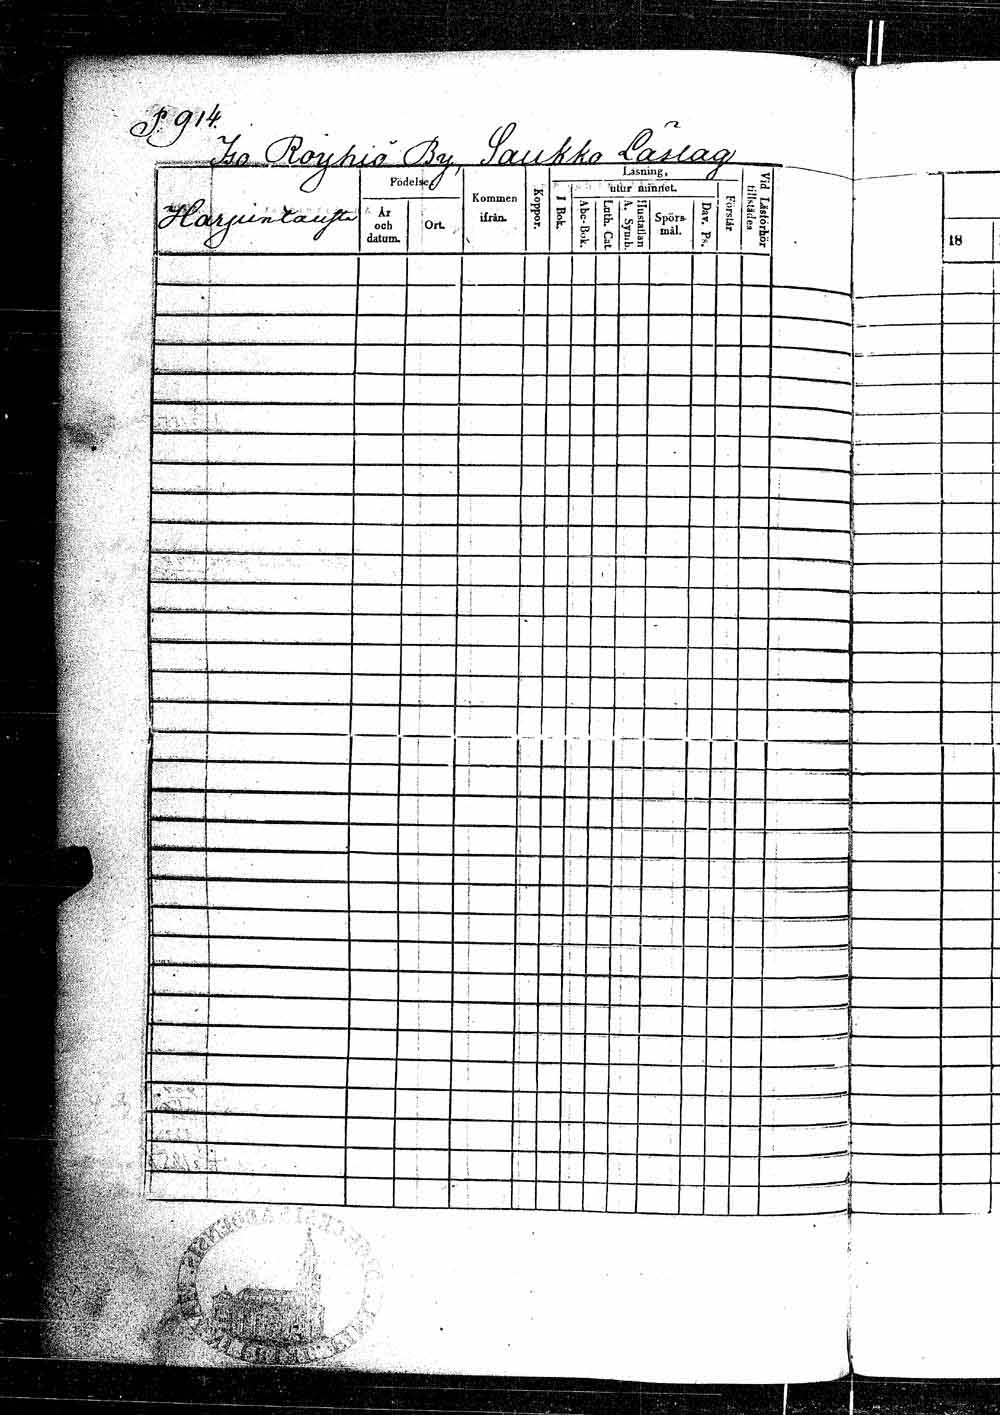 P. 914.
Iso Röyhiö By, Saukko Läslag
Harjuntausta
Födelse,
År och datum.
Ort.
Kommen ifrån.
Koppor.
Läsning,
utur minnet.
I Bok.
Abc-Bok.
Luth. Cat.
Hustaflan
A. Symb.
Spörsmål.
Dav. Ps.
Förstår
Vid Läsförhör tillstädes
18